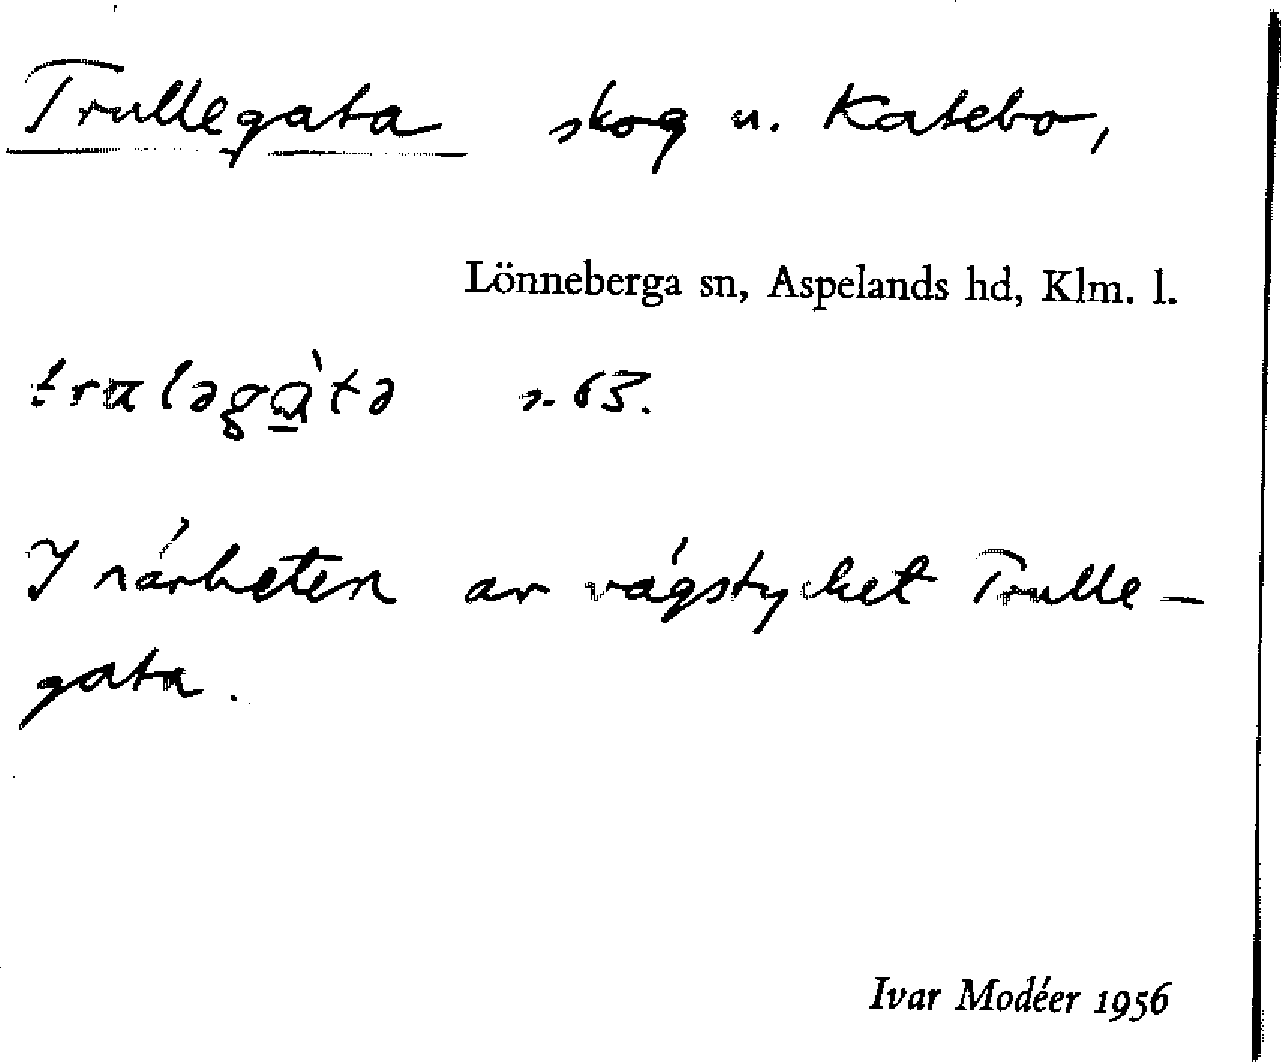 Trullegata skog u. Katebo,
Lönneberga sn, Aspelands hd, Klm. l.
truləgàtə s. 63.
I närheten av vägstycket Trulle-
gata.
Ivar Modéer 1956